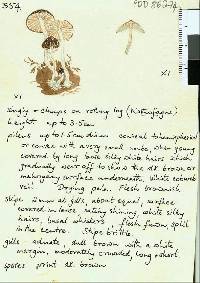 354
PDD 86274
x1
x1
Singly + clumps on rotting log (Nothofagus)
height up to 3.5cm
pileus up to 1.5cm diam conical to hemispherical
or convex with a very small umbo, when young
covered by long loose silky white hairs which
gradually wear off to show the dk brown or
mahogany surface underneath. White
veil. Drying pale. Flesh brownish
Stipe 2mm at gills, about equal, surface
covered in loose, shining, white silky
hairs, basal whiskers, flesh fawn, split
in the centre. Stipe brittle.
gills adnate, dull brown with a white
margin, moderately crowded long + short.
spores print dk brown